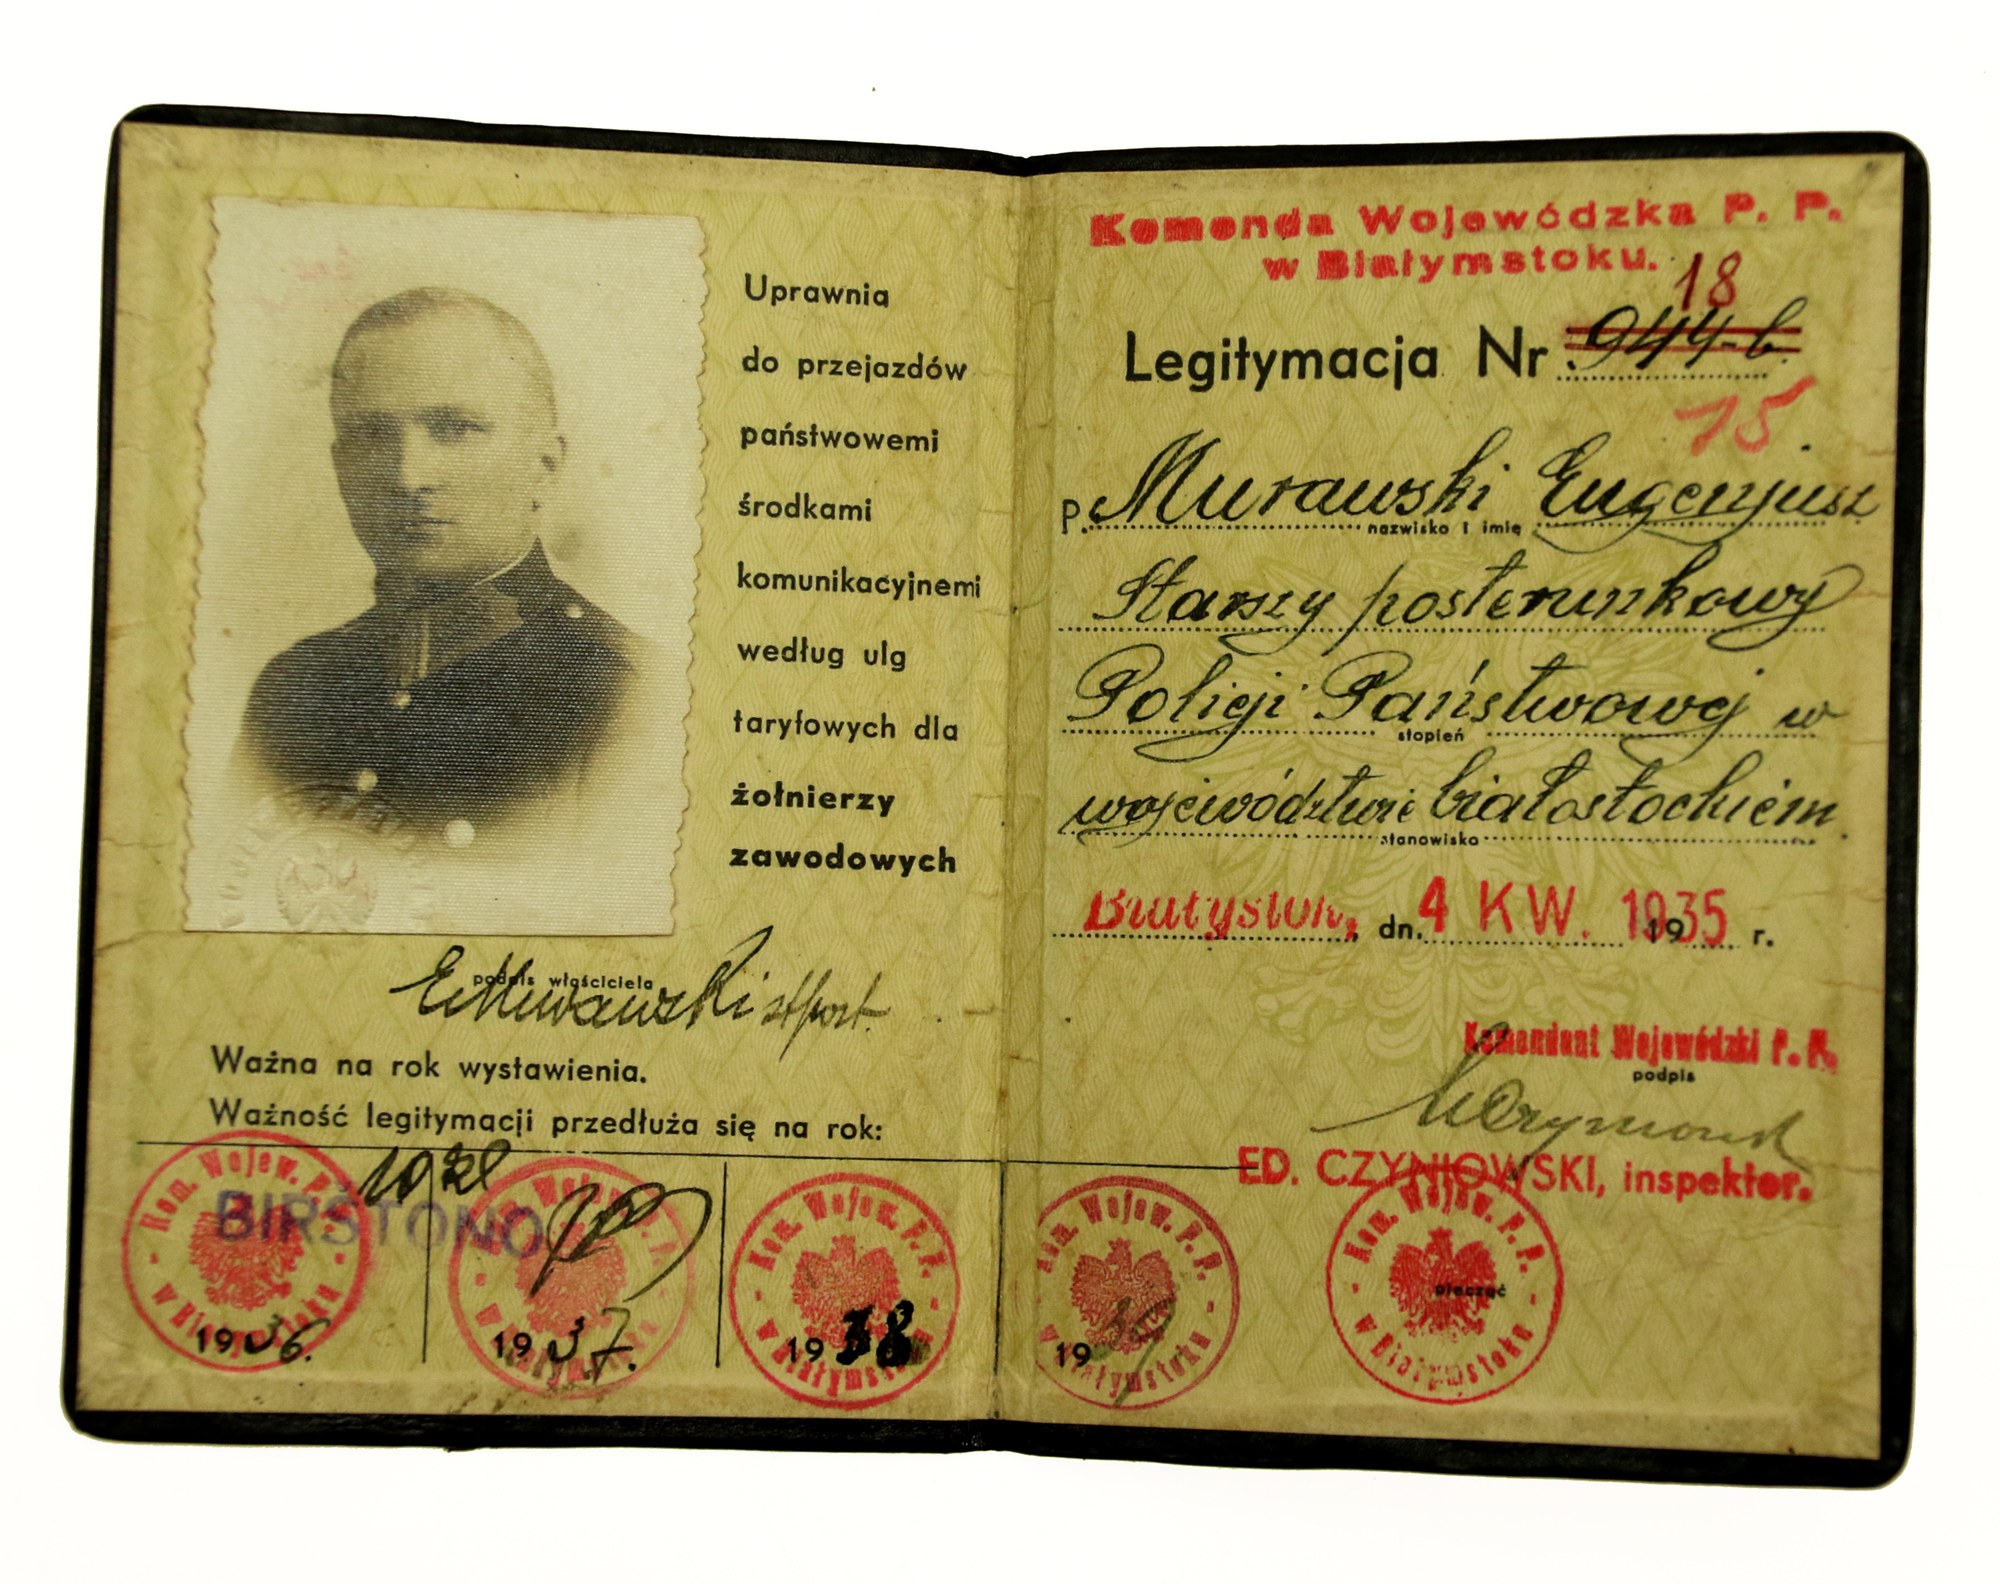 Uprawnia
do przejazdów
państwowemi
środkami
komunikacyjnemi
według ulg
taryfowych dla
żołnierzy
zawodowych
podpis właściciela
EMurawski st post.
Ważna na rok wystawienia.
Ważność legitymacji przedłuża się na rok:
BIRŠTONO
Kom. Wojew. P. P. w Białymstoku
1936.
Kom. Wojew. P. P. w Białymstoku
1937.
Kom. Wojew. P. P. w Białymstoku
1938
Komenda Wojewódzka P. P.
w Białymstoku.
18
Legitymacja Nr 944-b
15
P. Murawski Eugenjusz
nazwisko i imię
Starszy posterunkowy
Policji Państwowej w
stopień
województwie białostockiem.
stanowisko
Białystok, dn. 4 KW. 1935 19 r.
Komendant Wojewódzki P. P.
podpis
ED. CZYNIOWSKI, inspektor.
Kom. Wojew. P. P. w Białymstoku
19
Kom. Wojew. P. P. w Białymstoku
pieczęć